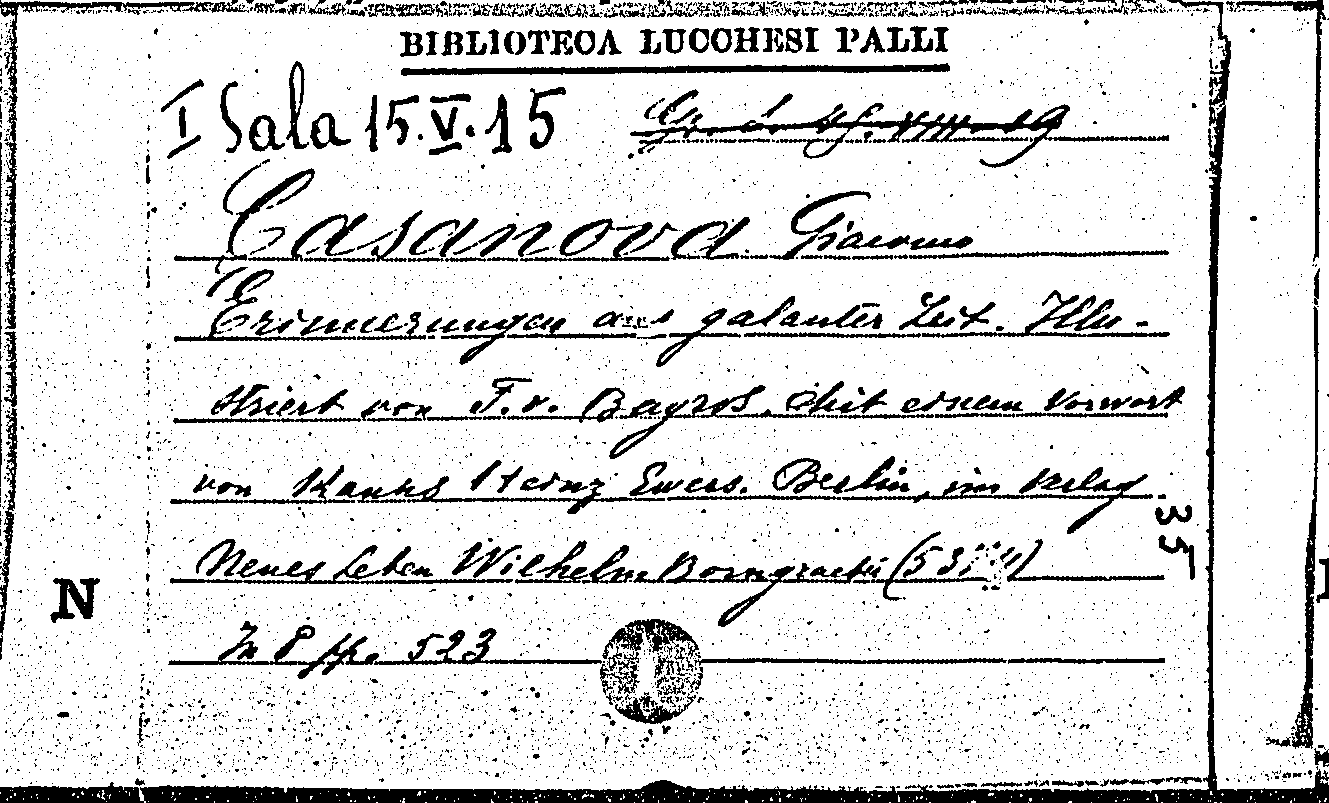 BIBLIOTECA LUCCHESI PALLI
I Sala 15.V.15
Casanova Giacomo
Erinnerungen aus galanter Zeit. Illu-
striert von F. v. Bayros. Mit einem Vorwort
von Hanns Heinz Ewers. Berlin, im Verlag
Neues Leben Wilhelm Borngraeber
In 8 pp. 523
35
N